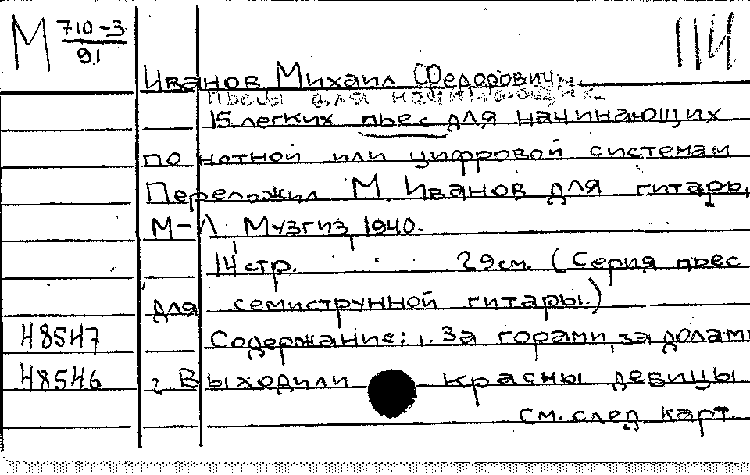 М 710-3
91
ПИ
Иванов Михаил Федорович.
Пьесы для начинающих
15 легких пьес для начинающих
по нотной или цифровой системам
Переложил М. Иванов для гитары
М-Л Музгиз, 1940.
14 стр. 29см. (Серия пьес
для семиструнной гитары.)
48547 Содержание: 1. За горами, за долами
48546 2 Выходили красны девицы
см. след карт.